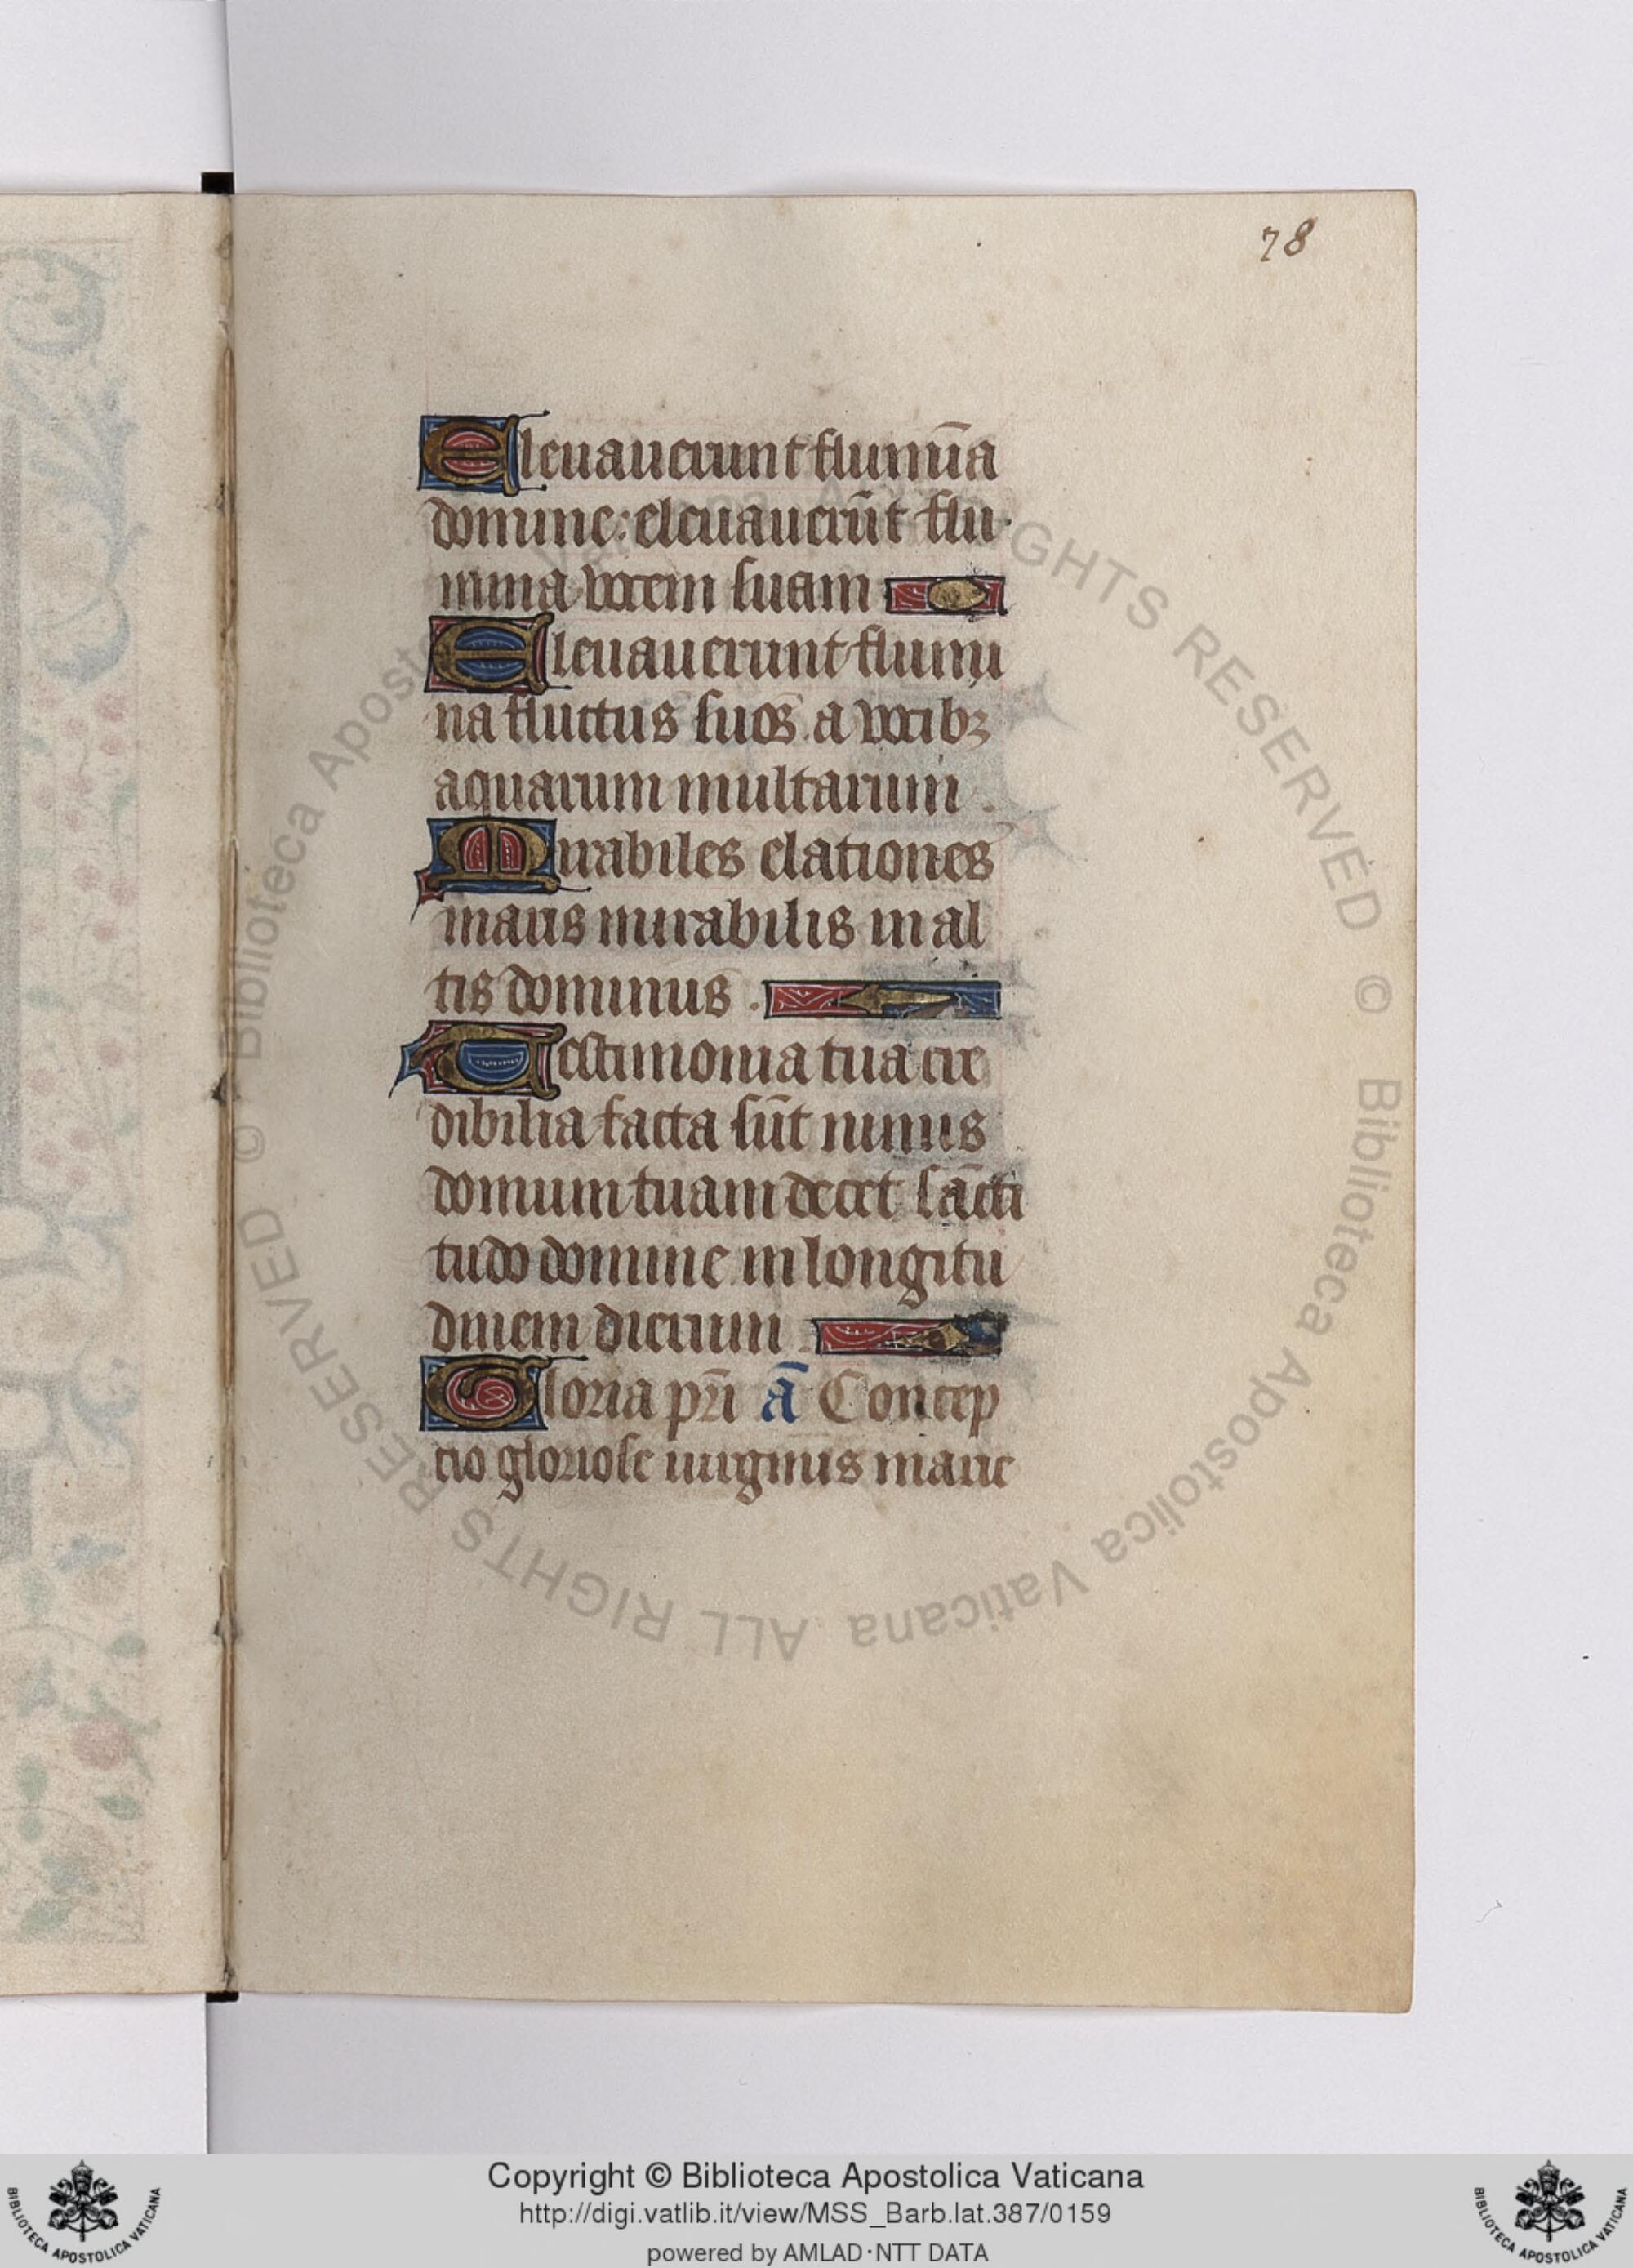 78
Eleuauerunt flumīa
domine: eleuauerūt flu
mina vocem suam
Eleuauerunt flumi
na fluctus suos a vocibꝫ
aquarum multarum .
Mirabiles elationes
maris mirabilis in al
tis dominus .
Testimonia tua cre
dibilia facta sūt nimis
domum tuam decet sācti
tudo domine in longitu
dinem dierum .
Gloria pr̄i ā Concep
cio gloriose uirginis marie
© Biblioteca Apostolica Vaticana ALL RIGHTS RESERVED © Biblioteca Apostolica Vaticana ALL RIGHTS RESERVED
Copyright © Biblioteca Apostolica Vaticana
http://digi.vatlib.it/view/MSS_Barb.lat.387/0159
powered by AMLAD·NTT DATA
BIBLIOTECA APOSTOLICA VATICANA
BIBLIOTECA APOSTOLICA VATICANA